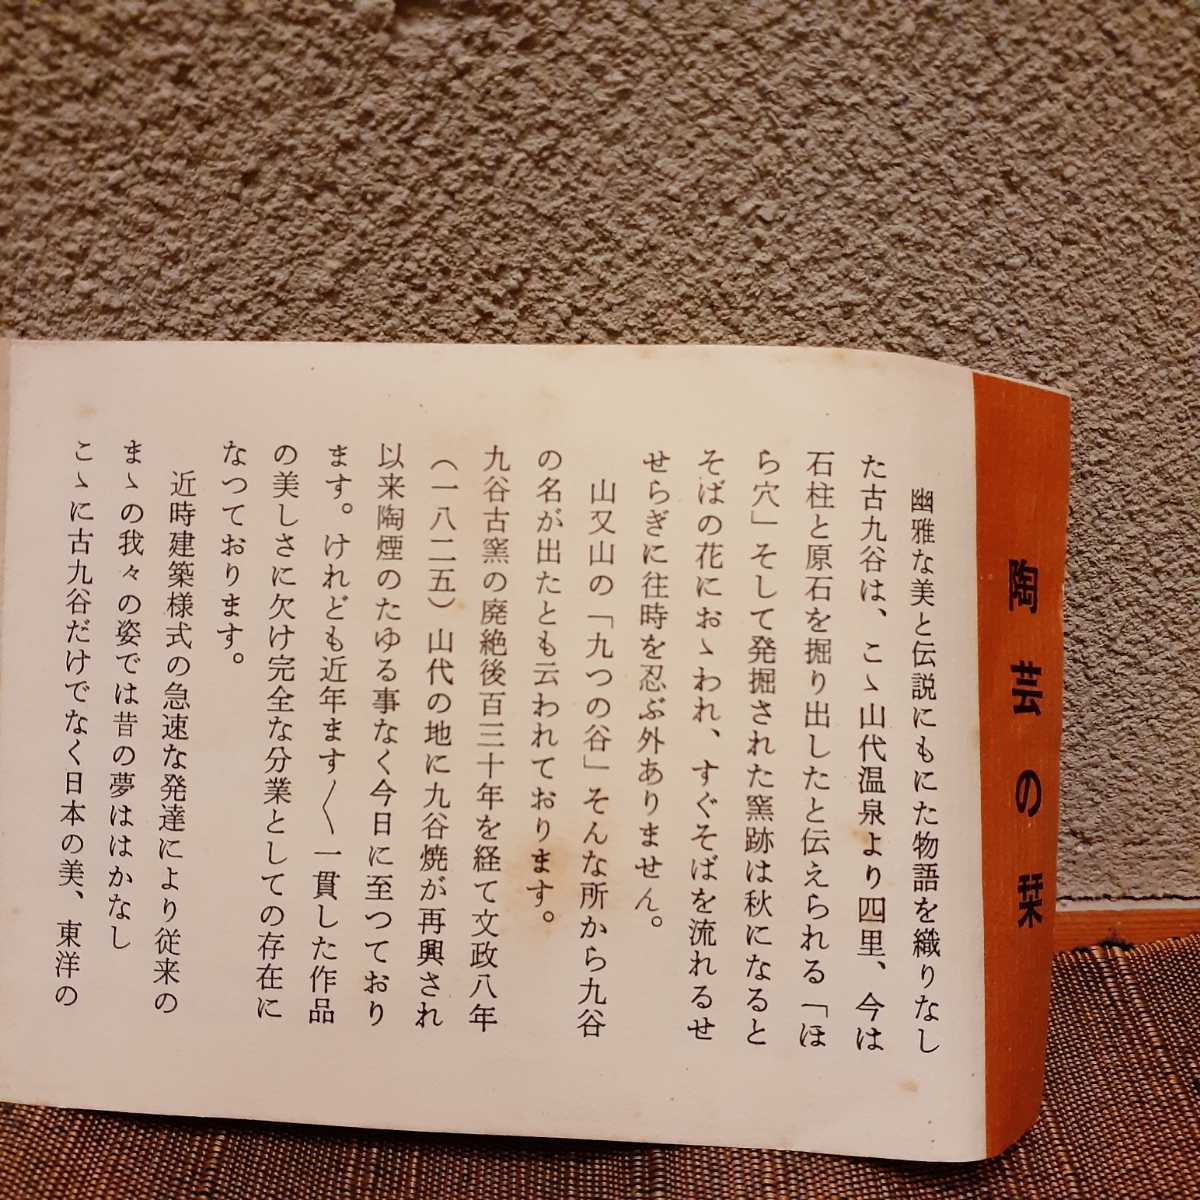 陶芸の栞
幽雅な美と伝説にもにた物語を織りなし
た古九谷は、こゝ山代温泉より四里、今は
石柱と原石を掘り出したと伝えられる「ほ
ら穴」そして発掘された窯跡は秋になると
そばの花におゝわれ、すぐそばを流れるせ
せらぎに往時を忍ぶ外ありません。
山又山の「九つの谷」そんな所から九谷
の名が出たとも云われております。
九谷古窯の廃絶後百三十年を経て文政八年
(一八二五)山代の地に九谷焼が再興され
以来陶煙のたゆる事なく今日に至つており
ます。けれども近年ます〳〵一貫した作品
の美しさに欠け完全な分業としての存在に
なつております。
近時建築様式の急速な発達により従来の
まゝの我々の姿では昔の夢ははかなし
こゝに古九谷だけでなく日本の美、東洋の